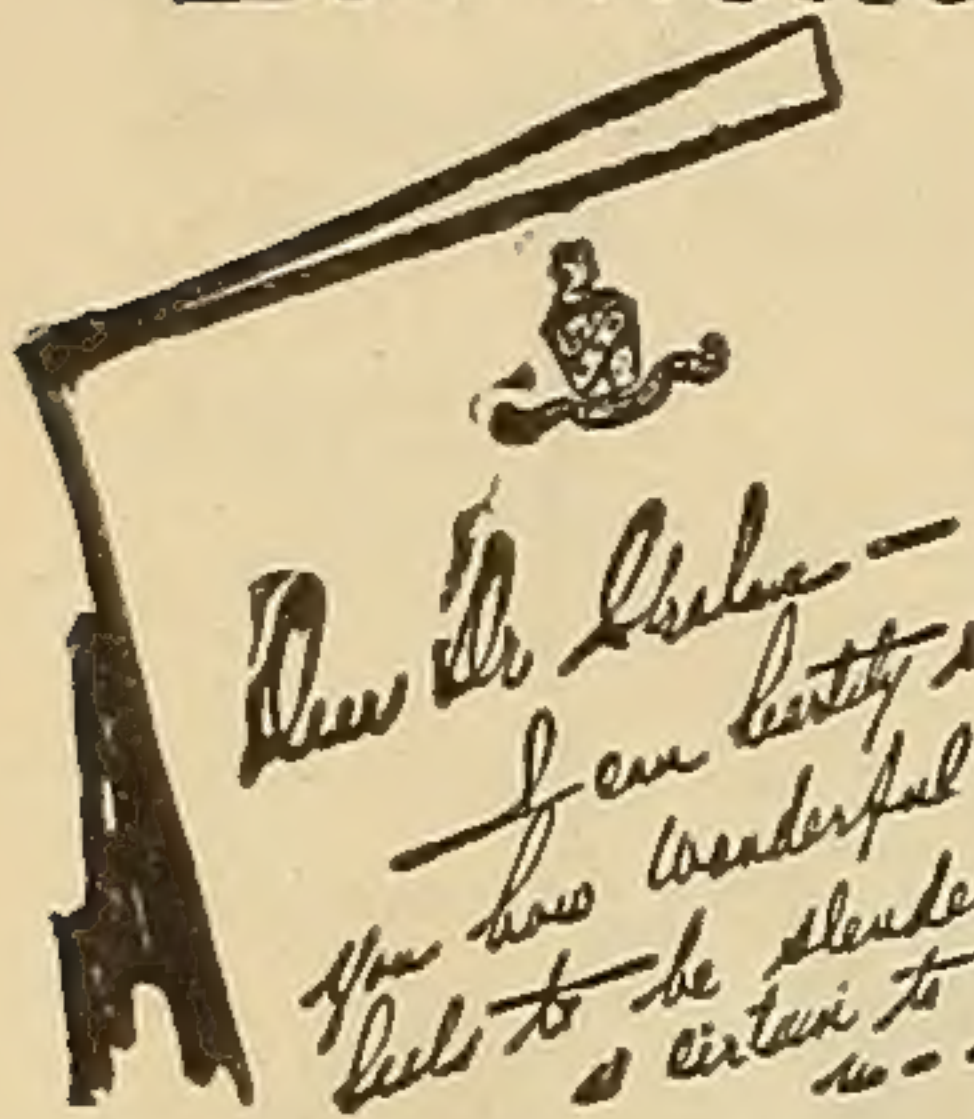 Dear Dr Graham —
I can hardly
you how wonderful
feels to be slende
certain to